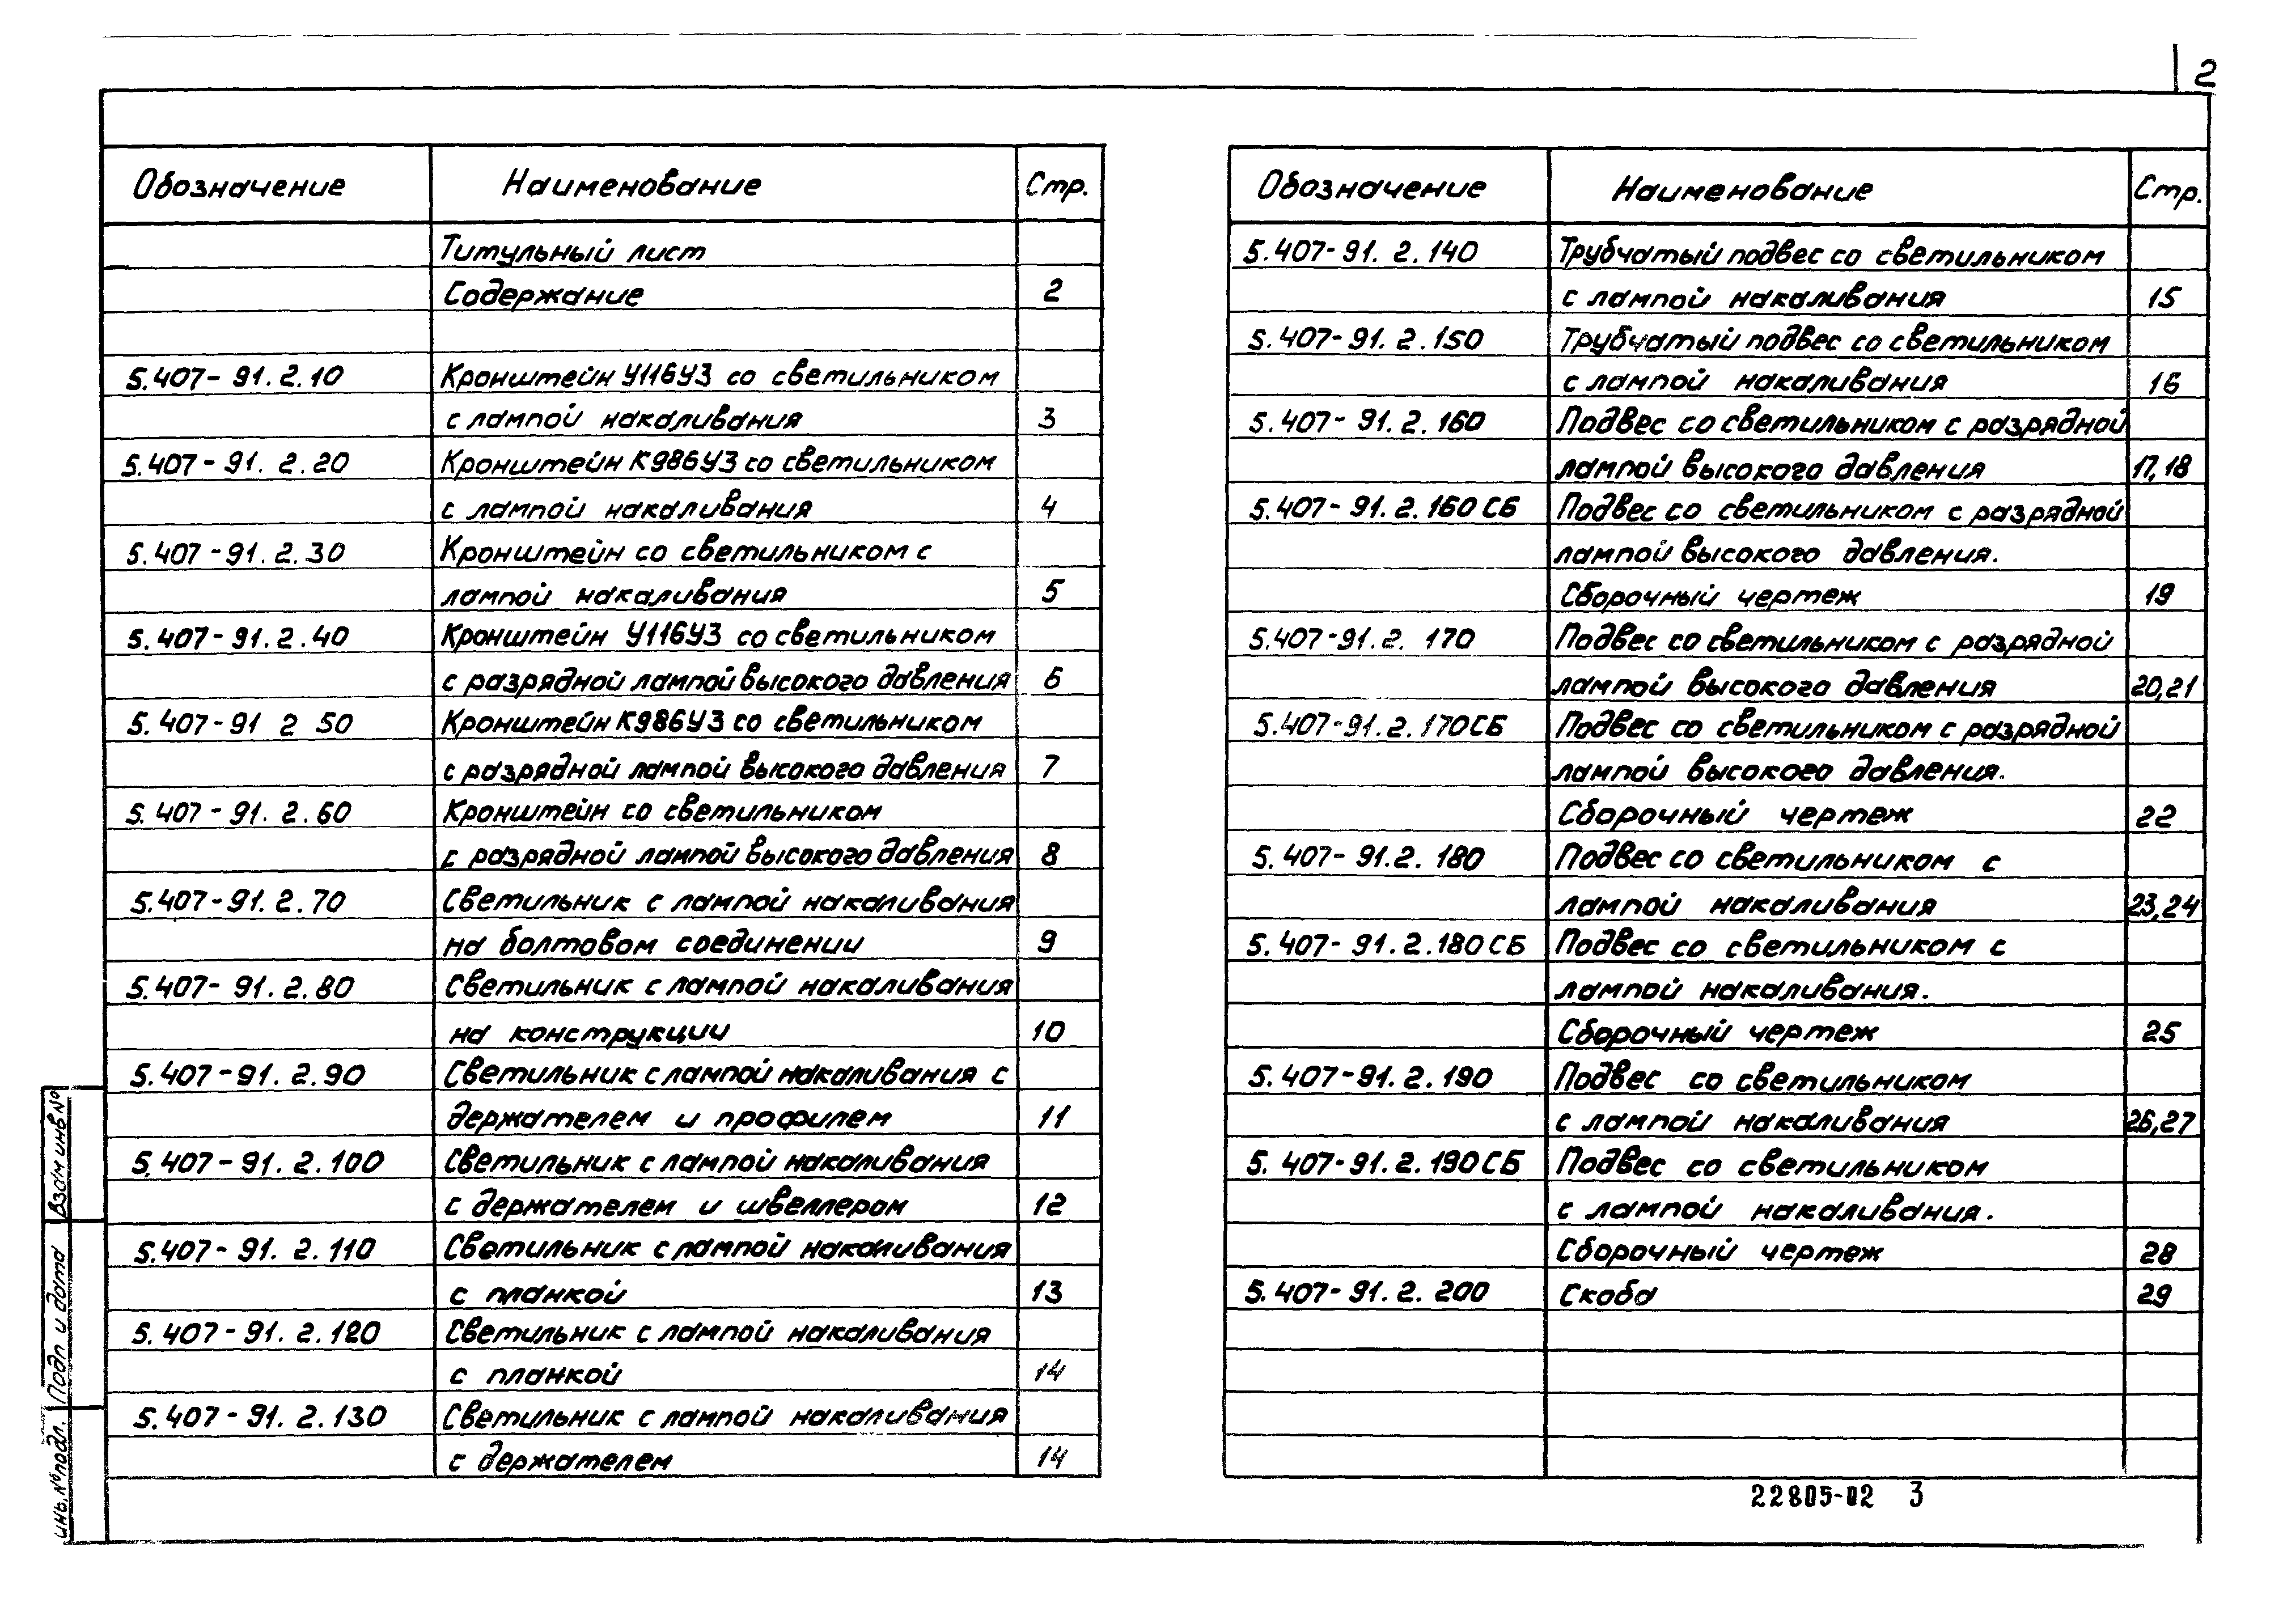 2
Обозначение Наименование Стр.
Титульный лист
Содержание 2
5.407-91.2.10 Кронштейн У116У3 со светильником
с лампой накаливания 3
5.407-91.2.20 Кронштейн К986У3 со светильником
с лампой накаливания 4
5.407-91.2.30 Кронштейн со светильником с
лампой накаливания 5
5.407-91.2.40 Кронштейн У116У3 со светильником
с разрядной лампой высокого давления 6
5.407-91 2 50 Кронштейн К986У3 со светильником
с разрядной лампой высокого давления 7
5.407-91.2.60 Кронштейн со светильником
с разрядной лампой высокого давления 8
5.407-91.2.70 Светильник с лампой накаливания
на болтовом соединении 9
5.407-91.2.80 Светильник с лампой накаливания
на конструкции 10
5.407-91.2.90 Светильник с лампой накаливания с
держателем и профилем 11
5.407-91.2.100 Светильник с лампой накаливания
с держателем и швеллером 12
5.407-91.2.110 Светильник с лампой накаливания
с планкой 13
5.407-91.2.120 Светильник с лампой накаливания
с планкой 14
5.407-91.2.130 Светильник с лампой накаливания
с держателем 14
Обозначение Наименование Стр.
5.407-91.2.140 Трубчатый подвес со светильником
с лампой накаливания 15
5.407-91.2.150 Трубчатый подвес со светильником
с лампой накаливания 16
5.407-91.2.160 Подвес со светильником с разрядной
лампой высокого давления 17,18
5.407-91.2.160 СБ Подвес со светильником с разрядной
лампой высокого давления.
Сборочный чертеж 19
5.407-91.2.170 Подвес со светильником с разрядной
лампой высокого давления 20,21
5.407-91.2.170СБ Подвес со светильником с разрядной
лампой высокого давления.
Сборочный чертеж 22
5.407-91.2.180 Подвес со светильником с
лампой накаливания 23,24
5.407-91.2.180 СБ Подвес со светильником с
лампой накаливания.
Сборочный чертеж 25
5.407-91.2.190 Подвес со светильником
с лампой накаливания 26,27
5.407-91.2.190СБ Подвес со светильником
с лампой накаливания.
Сборочный чертеж 28
5.407-91.2.200 Скоба 29
Взам инв №
Подп и дата
инв. № подл.
22805-02 3